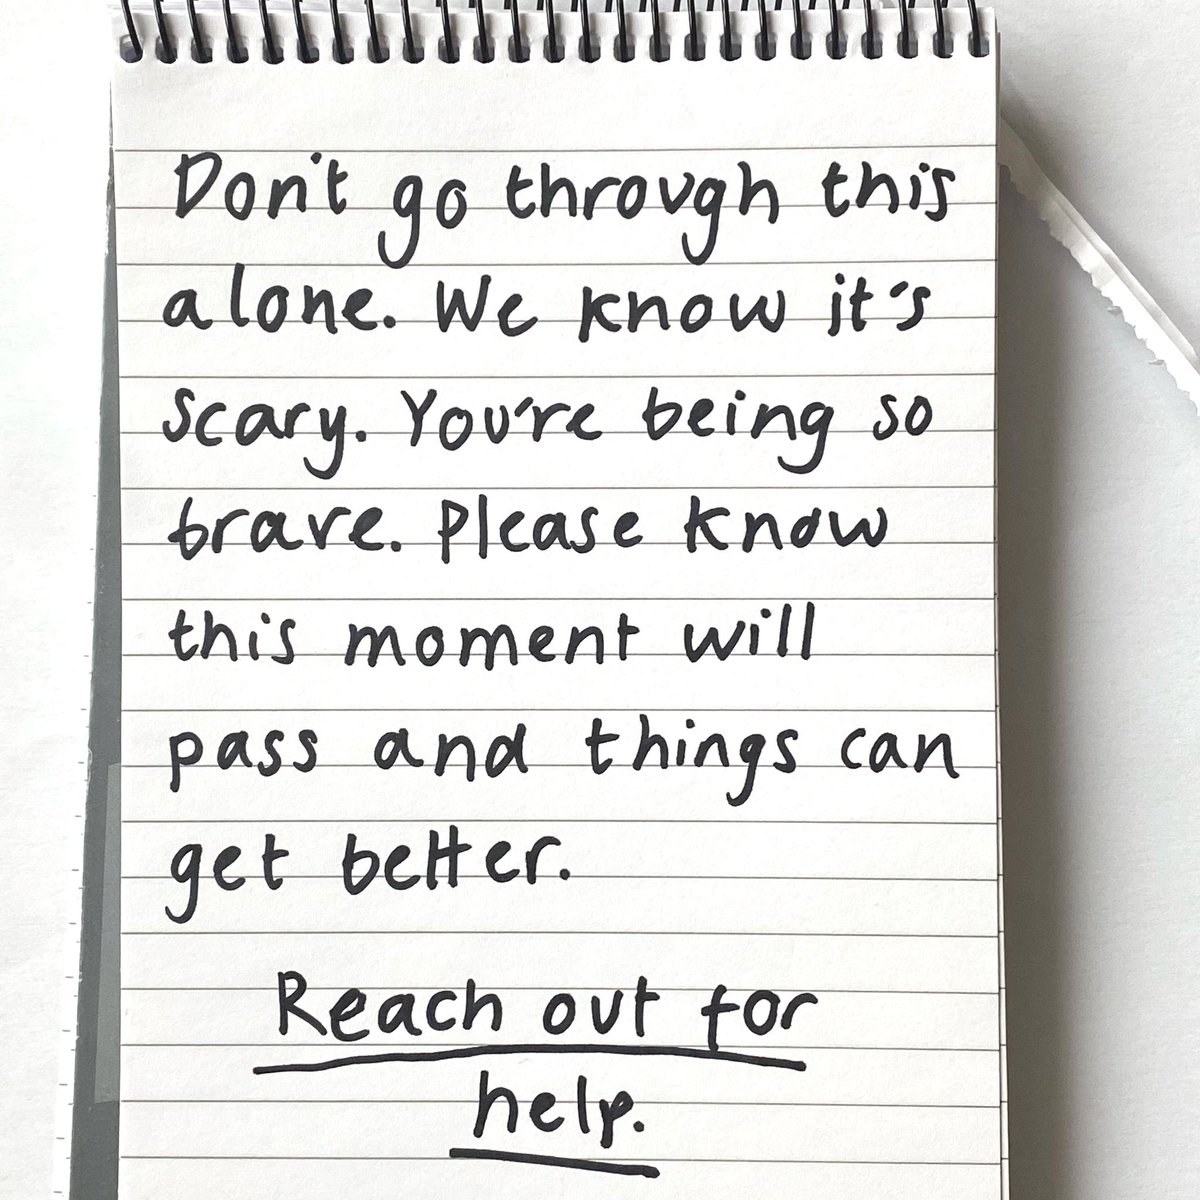 Don't go through this
alone. We know it's
scary. You're being so
brave. Please know
this moment will
pass and things can
get better.
Reach out for
help.